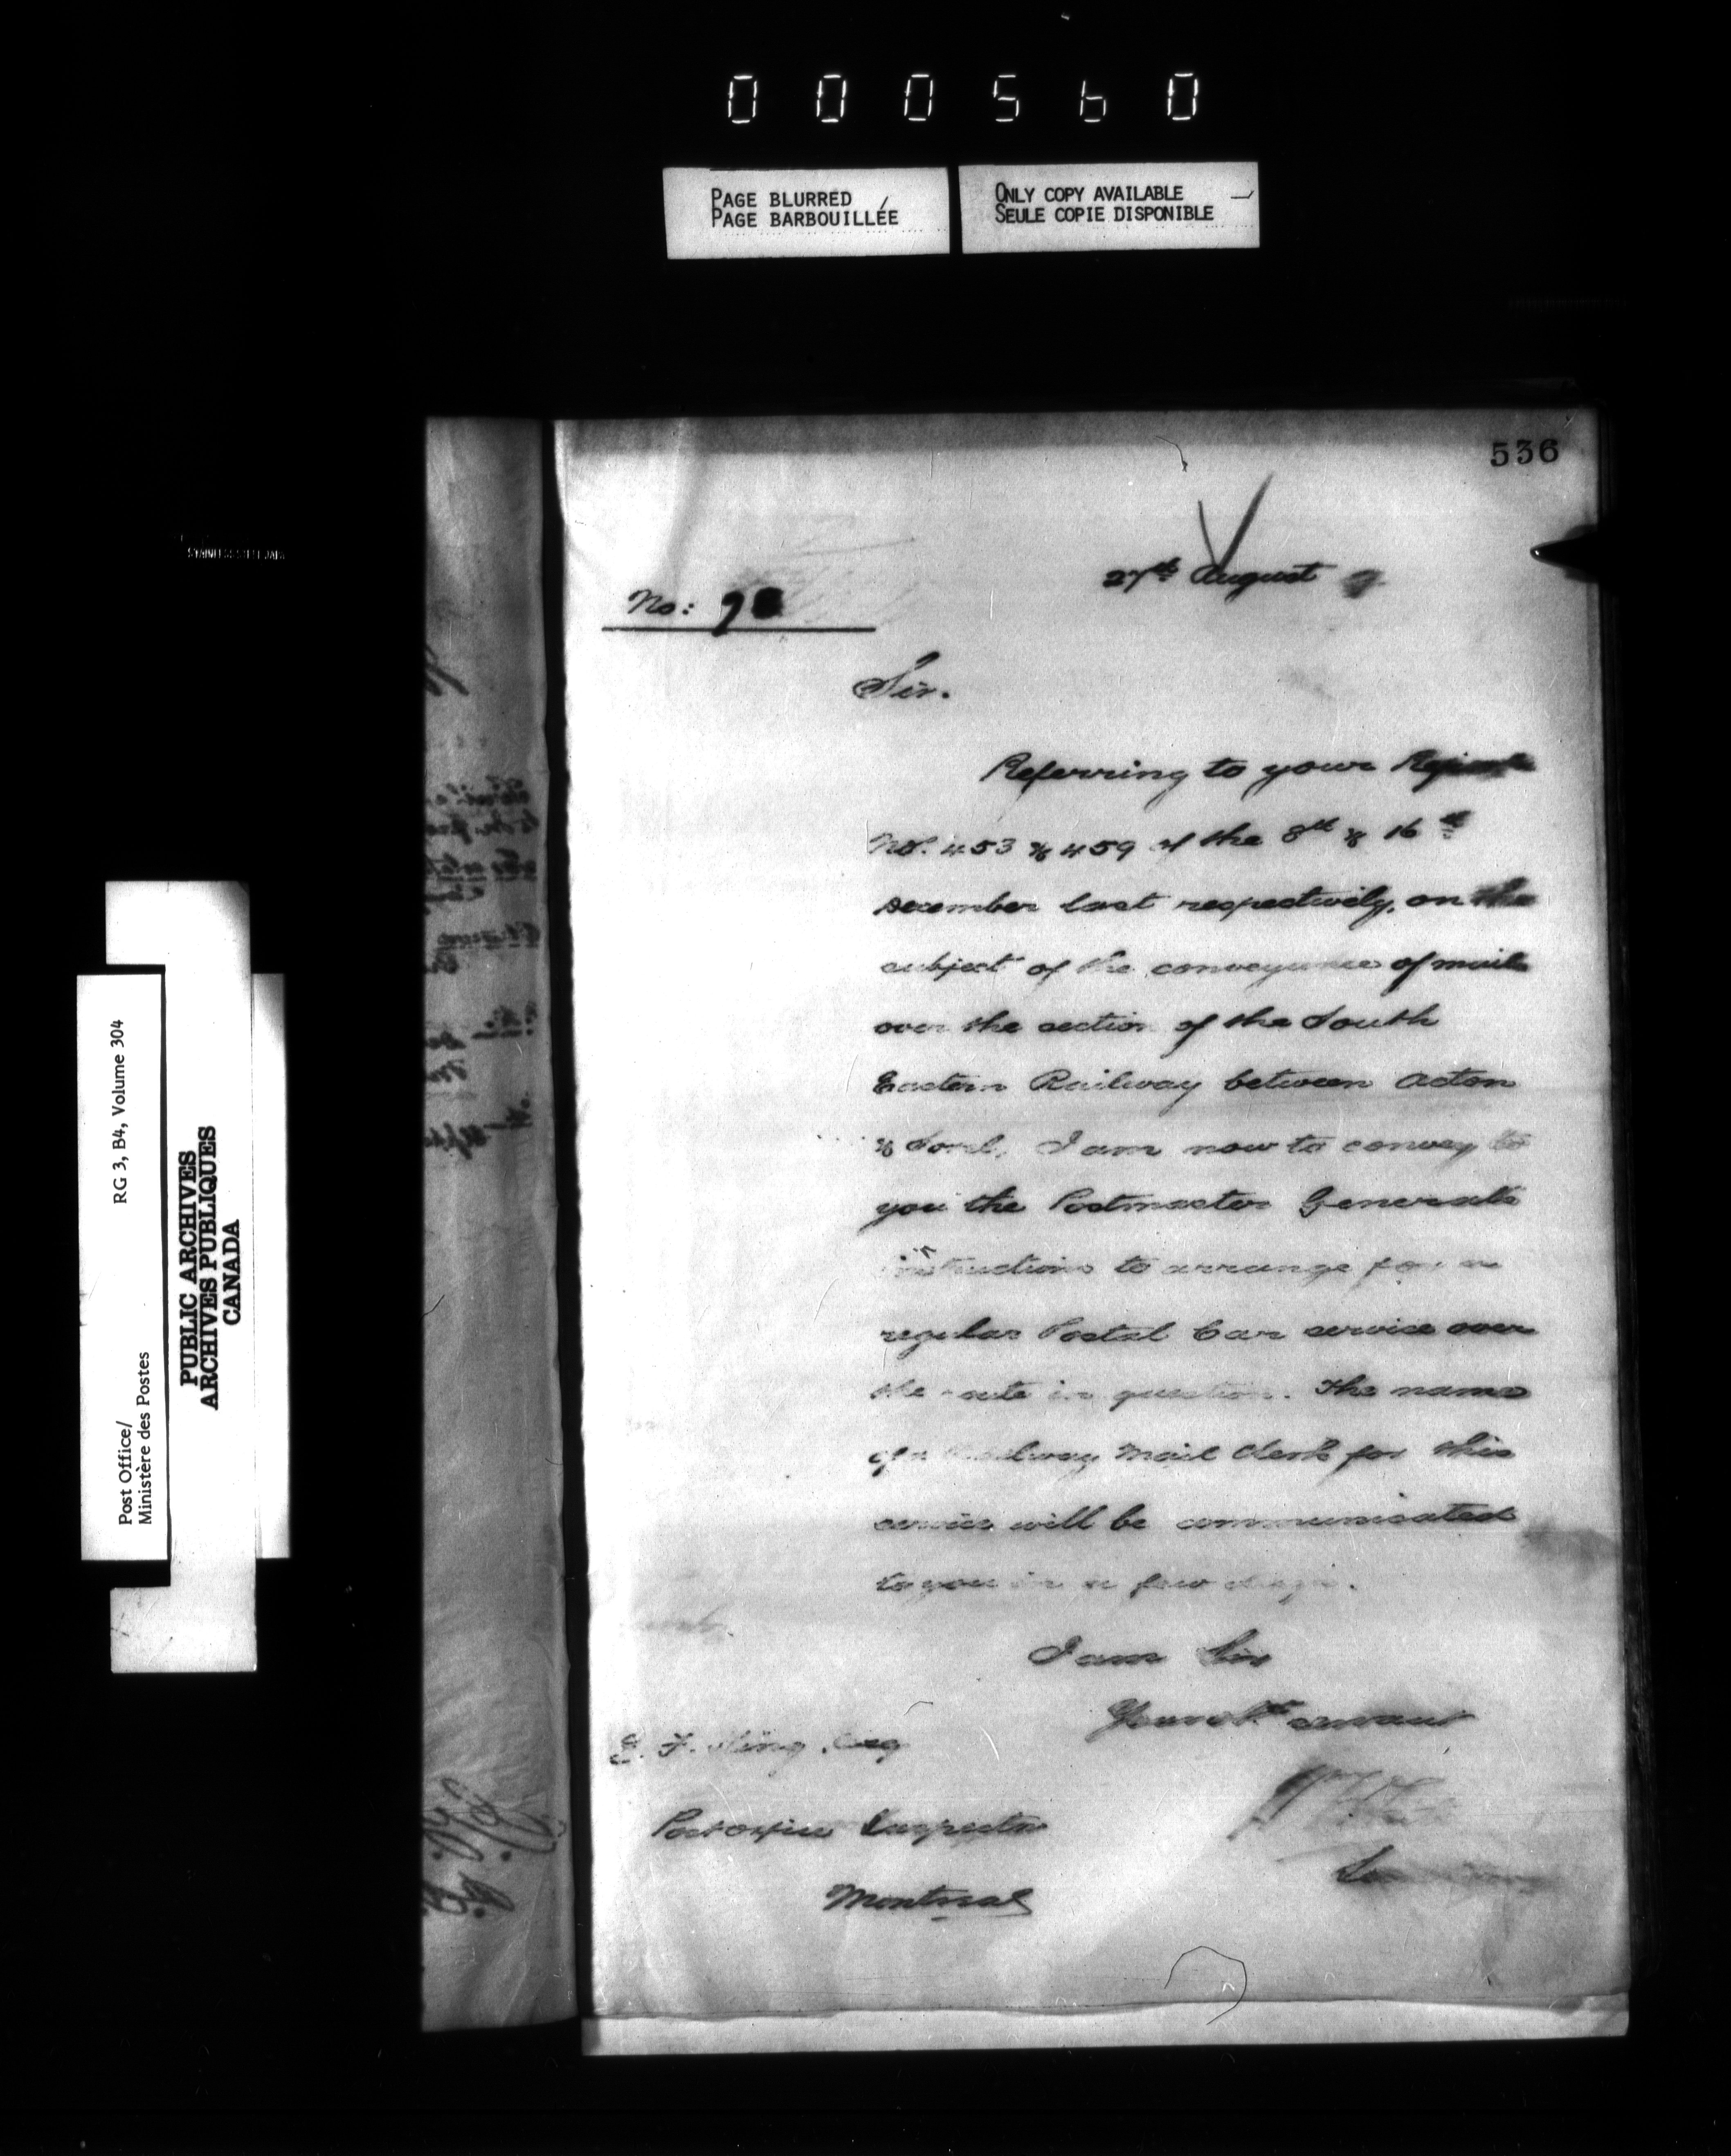 000560
PAGE BLURRED
PAGE BARBOUILLÉE
ONLY COPY AVAILABLE
SEULE COPIE DISPONIBLE
536
27th August
No:
Sir.
Referring to your
No. 453 & 459 of the 8th & 16th
December last respectively, on the
subject of the conveyance of mails
over the section of the South
Eastern Railway between Acton
& Sorel, I am now to convey to
you the Postmaster Generals
instructions to arrange for a
regular Postal Car service over
the route in question. The name
of a Railway Mail Clerk for this
service will be communicated
to you in a few days.
I am Sir
Your obt servant
E. F. King Esq
Post Office Inspector
Montreal
Post Office/
Ministère des Postes
RG 3, B4, Volume 304
PUBLIC ARCHIVES
ARCHIVES PUBLIQUES
CANADA